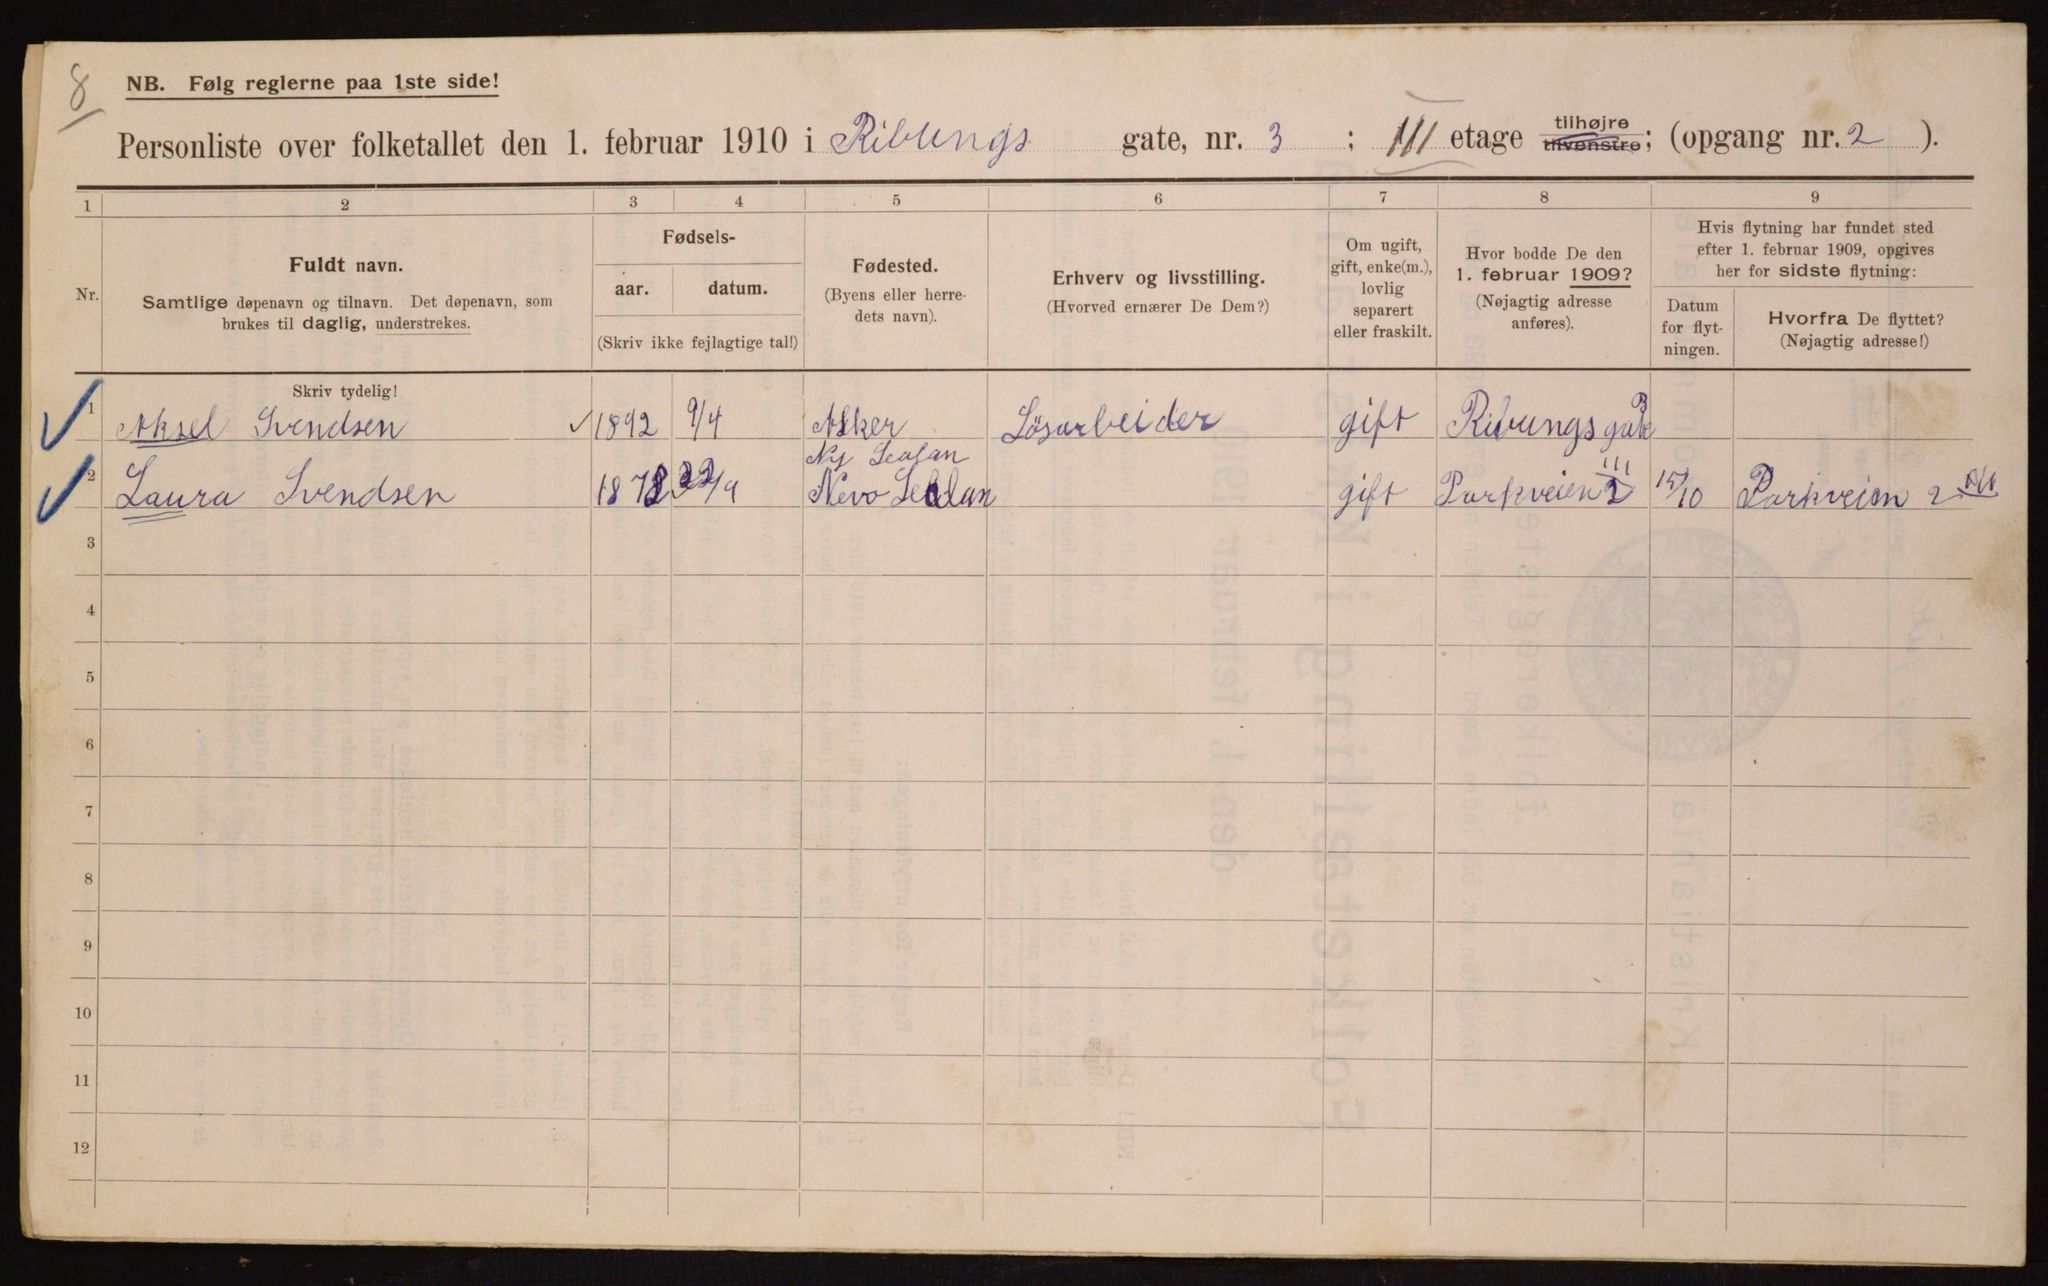 8
NB. Følg reglerne paa 1ste side!
Personliste over folketallet den 1. februar 1910 i Ribungs gate, nr. 3 ; III etage tilhøjre tilvenstre; (opgang nr. 2 ).
1 2 3 4 5 6 7 8 9
Nr.
Fuldt navn.
Samtlige døpenavn og tilnavn. Det døpenavn, som
brukes til daglig, understrekes.
Fødsels-
aar. datum.
(Skriv ikke fejlagtige tal!)
Fødested.
(Byens eller herre-
dets navn).
Erhverv og livsstilling.
(Hvorved ernærer De Dem?)
Om ugift,
gift, enke(m.),
lovlig
separert
eller fraskilt.
Hvor bodde De den
1. februar 1909?
(Nøjagtig adresse
anføres).
Hvis flytning har fundet sted
efter 1. februar 1909, opgives
her for sidste flytning:
Datum
for flyt-
ningen.
Hvorfra De flyttet?
(Nøjagtig adresse!)
Skriv tydelig!
1 Aksel Svendsen 1892 9/4 Asker Løsarbeider gift Ribungs gate 3
2 Laura Svendsen 1878 22/9 Gift Parkveien 2 III 15/10 Parkveien 2
3
4
5
6
7
8
9
10
11
12